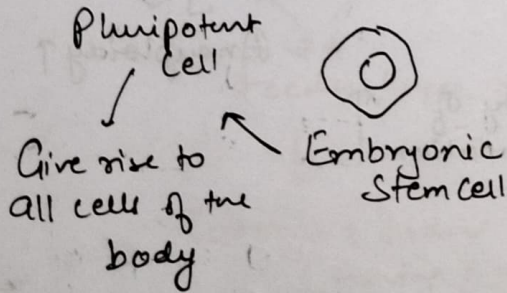 Pluripotent
Cell
Give rise to
all cells of the
body
Embryonic
Stem cell